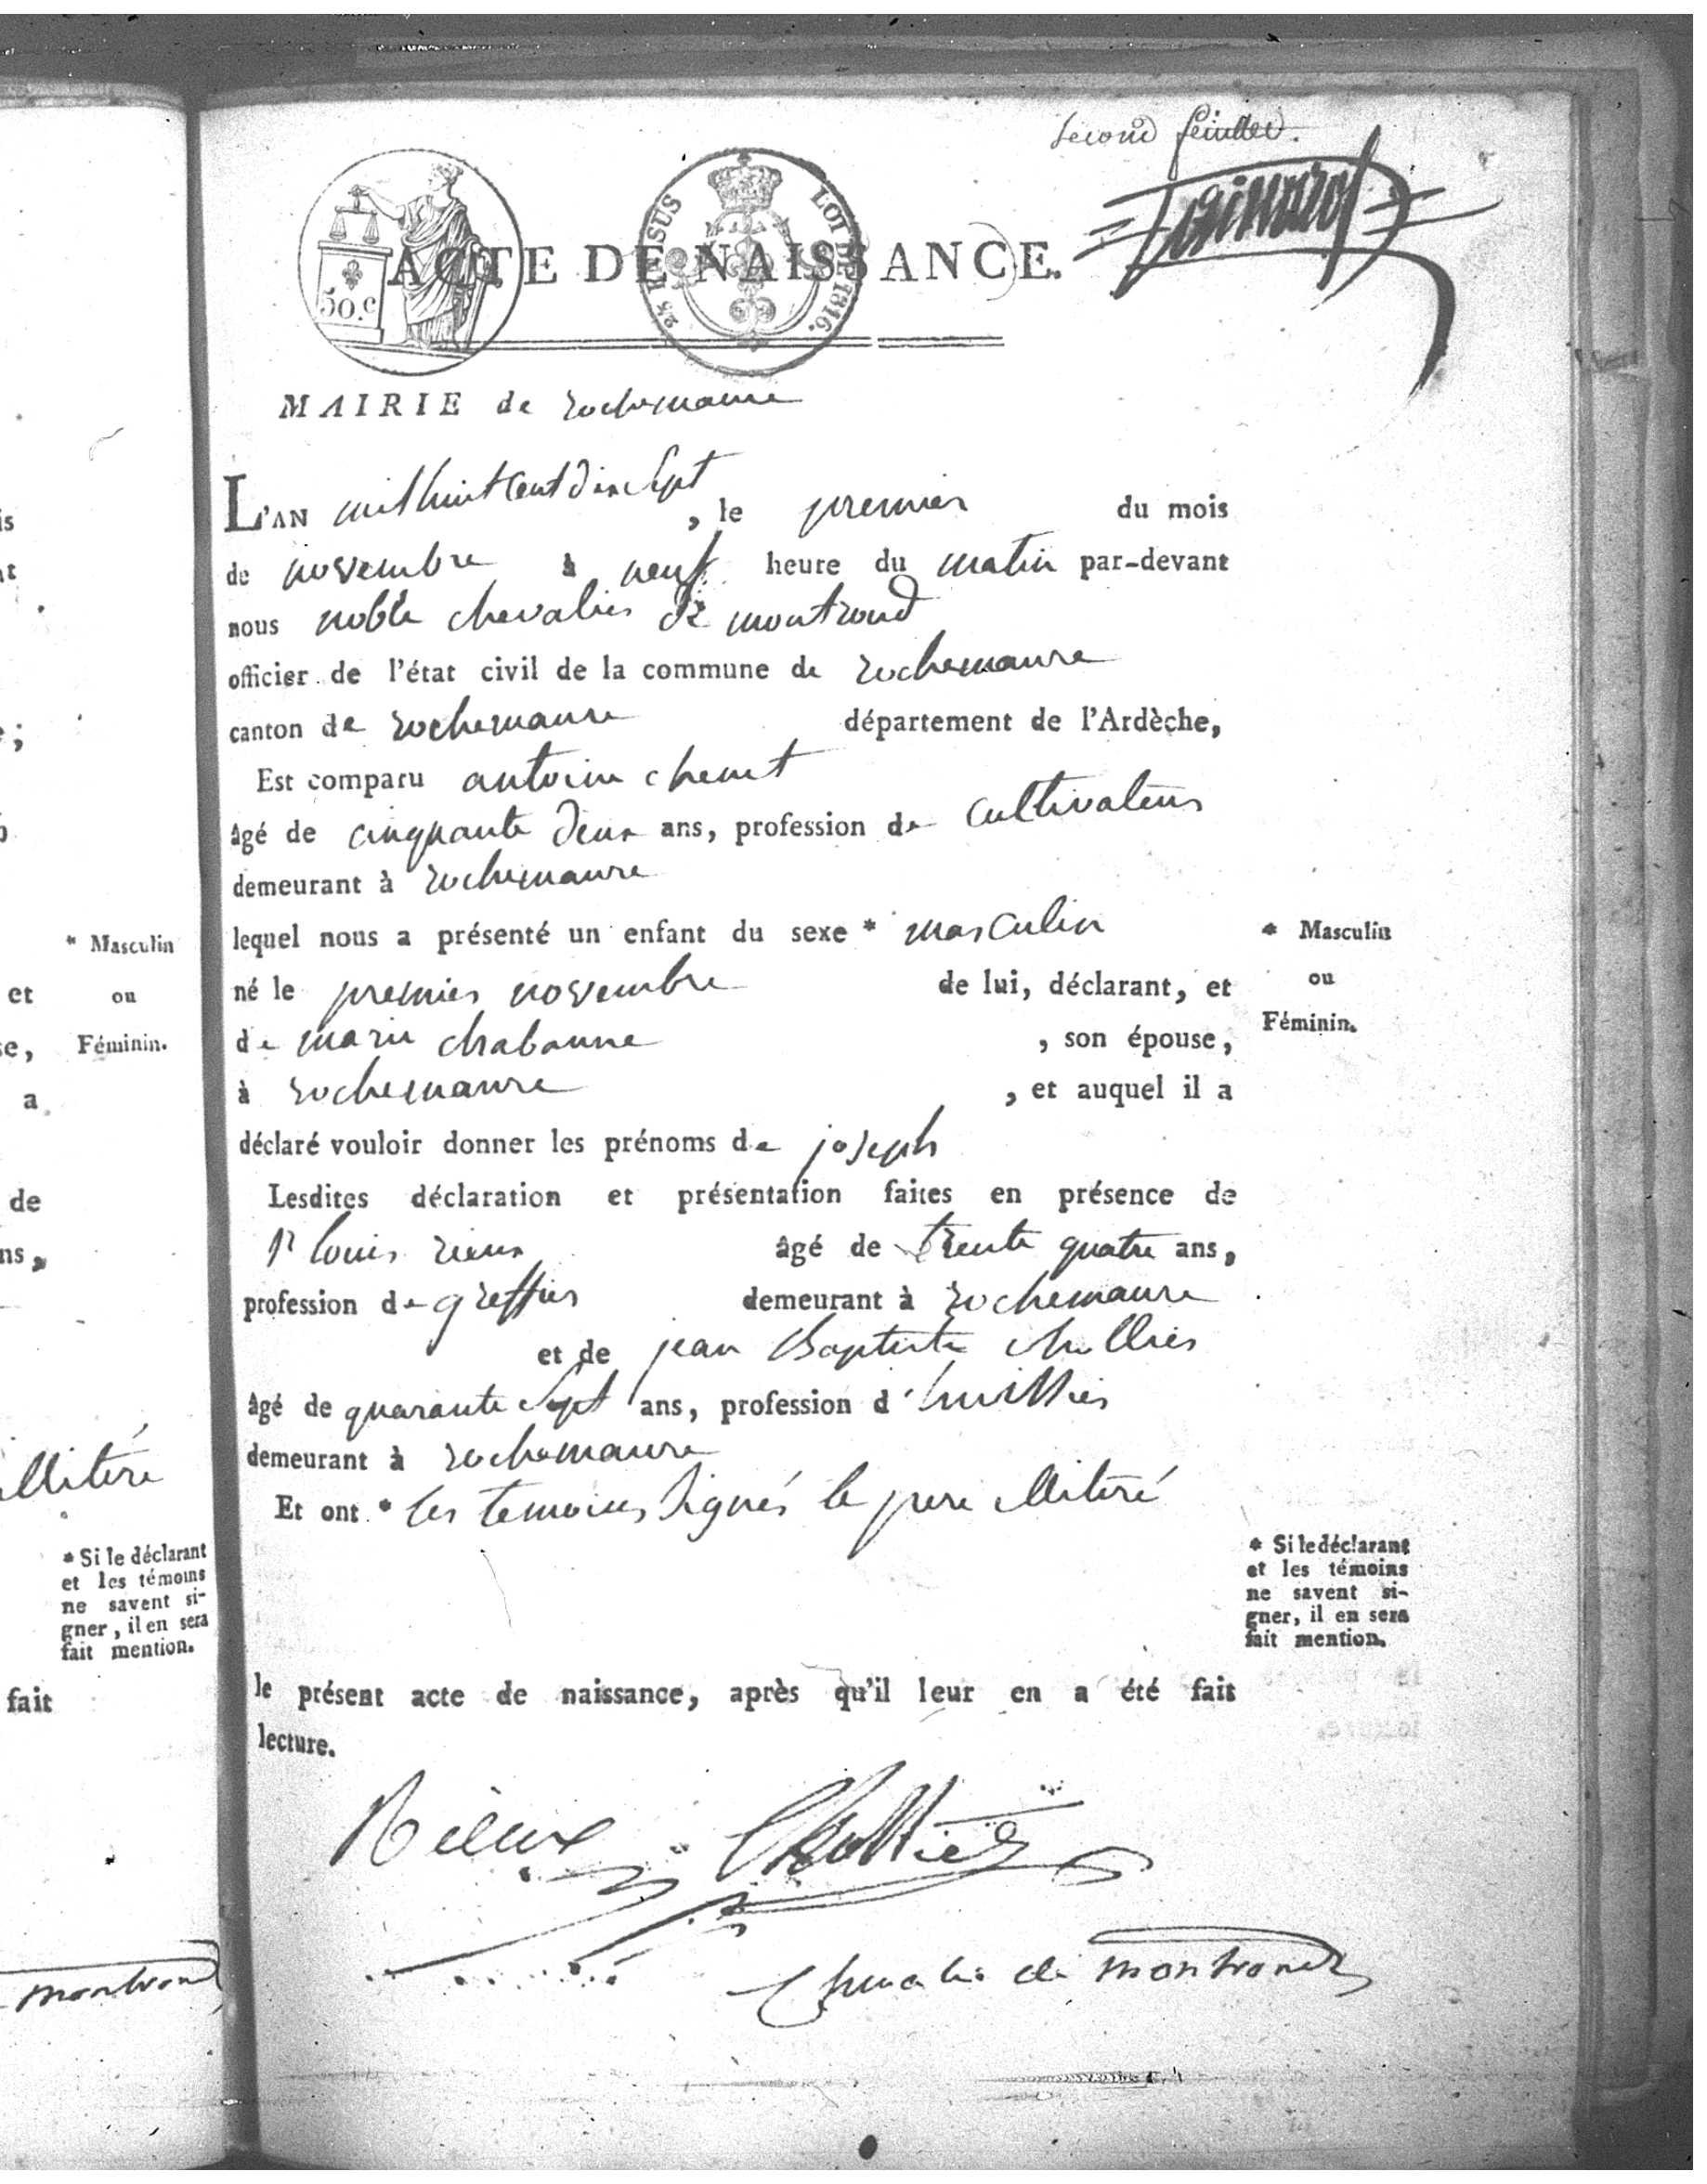 second feuillet.
50.c
25 EN SUS
LOI DE 1816.
ACTE DE NAISSANCE.
MAIRIE de rochemaure
L'AN mil huit cent dix sept, le premier du mois
de novembre à neuf heure du matin par-devant
nous noble chevalier de montrond
officier de l'état civil de la commune de rochemaure
canton de rochemaure département de l'Ardèche,
Est comparu antoine chenet
âgé de cinquante deux ans, profession de cultivateur
demeurant à rochemaure
lequel nous a présenté un enfant du sexe * masculin
né le premier novembre de lui, déclarant, et
de marie chabanne, son épouse,
à rochemaure, et auquel il a
déclaré vouloir donner les prénoms de joseph
Lesdites déclaration et présentation faites en présence de
Sr louis rieux âgé de trente quatre ans,
profession de greffier demeurant à rochemaure
et de jean Baptiste chollier
âgé de quarante sept ans, profession d'huillier
demeurant à rochemaure
Et ont * les temoins signés le pere illiteré
le présent acte de naissance, après qu'il leur en a été fait
lecture.
* Masculin
ou
Féminin.
* Si le déclarant
et les témoins
ne savent si-
gner, il en sera
fait mention.
Rieux Chollier
Chevalier de montrond
* Masculin
ou
Féminin.
et
a
de
illiteré
* Si le déclarant
et les témoins
ne savent si-
gner, il en sera
fait mention.
fait
montrond